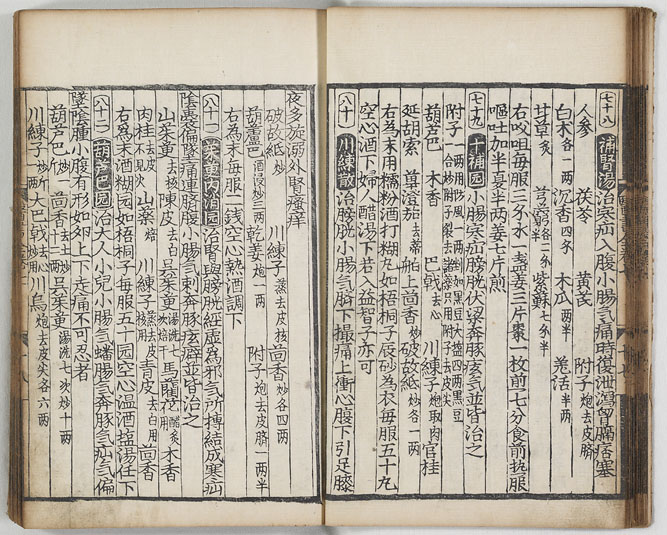 七十八 補腎湯治寒疝入腹小腸氣痛時復泄瀉胷膈痞塞
人參 茯苓 黃芪 附子炮去皮臍
白术各一兩 沉香四㦮 木瓜兩半 羌活半兩
甘草炙 芎藭各二分 紫蘇七分半
右㕮咀每服三分水一盞姜三片棗一枚煎七分食前热服
嘔吐加半夏半兩姜七片煎
七十九 十補园 小腸寒疝膀胱伏梁奔豚痃氣並皆治之
附子一兩用防風一兩
葫芦巴 木香 巴戟去心 川練子炮取肉 官桂
延胡索 蓽澄茄去蒂 舶上茴香炒 破故紙炒各一兩
右為末用糯粉酒打糊丸如梧桐子辰砂為衣每服五十丸
空心酒下婦人醋湯下若入益智子亦可
八十 川練散 治膀胱小腸氣臍下撮痛上衝心腹下引足膝
夜多旋溺外腎瘙痒
破故紙炒 川練子蒸去皮核 茴香炒各四兩
葫蘆巴酒浸炒三兩 乾姜炮一兩 附子炮去皮臍一兩半
右為末每服二錢空心熱酒調下
八十一 茱萸內消园 治腎與膀胱經虛為邪氣所搏結成寒疝
陰囊偏墜痛連臍腹小腸氣刺奔豚痃癖並皆治之
山茱萸去核 陳皮去白 吳茱萸湯洗七次焙干 馬藺花醋炙 木香
肉桂去皮不見火 山藥焙 川練子蒸去皮核用 青皮去白 茴香
右為末酒糊园如梧桐子每服五十园空心温酒塩湯任下
八十二 葫芦巴园 治大人小兒小腸氣蟠腸氣奔豚氣疝氣偏
墜陰腫小腹有形如夘上下走痛不可忍者
葫芦巴炒一斤 茴香去土炒十二兩 吳茱萸湯洗七次炒十兩
川練子 大巴戟去心炒 川烏炮去皮尖各六兩